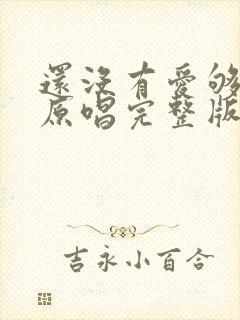 還沒有愛够
原唱完整版
吉永小百合